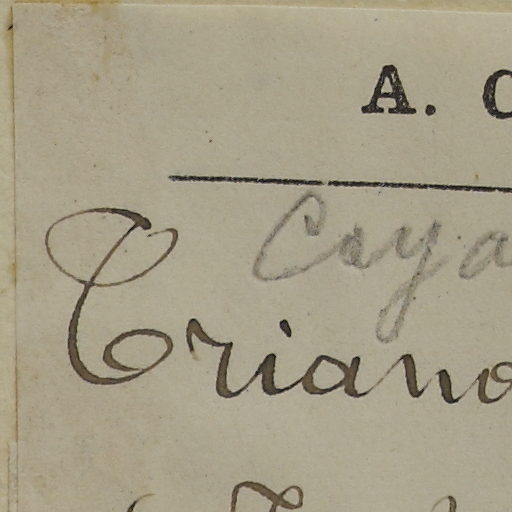 A. C
Coya
Triano